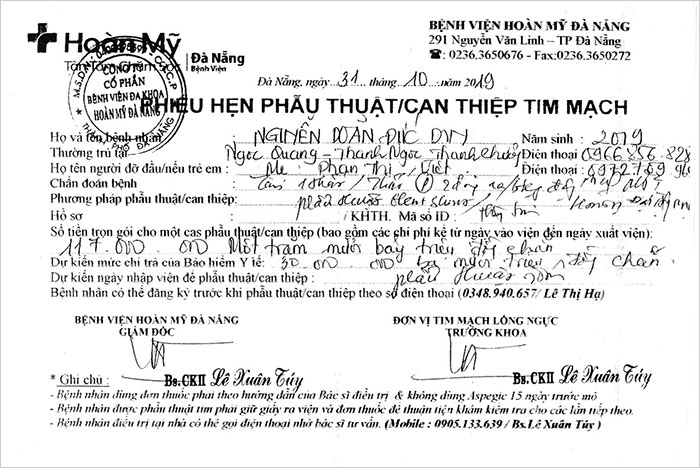 Hoàn Mỹ
Đà Nẵng
Bệnh Viện
BỆNH VIỆN HOÀN MỸ ĐÀ NẴNG
291 Nguyễn Văn Linh – TP Đà Nẵng
☎: 0236.3650676 - Fax:0236.3650272
CÔNG TY
CỔ PHẦN
BỆNH VIỆN ĐA KHOA
HOÀN MỸ ĐÀ NẴNG
Đà Nẵng, ngày 31 tháng 10 năm 2019
PHIẾU HẸN PHẪU THUẬT/CAN THIỆP TIM MẠCH
Họ và tên bệnh nhân: NGUYỄN ĐOÀN ĐỨC DUY Năm sinh : 2019
Thường trú tại Ngọc Quang - Thanh Ngọc Thanh Chương Điện thoại 0966 856 828
Họ tên người đỡ đầu/nếu trẻ em : Mẹ: Phan Thị Việt Điện thoại :
Chẩn đoán bệnh
Phương pháp phẫu thuật/can thiệp:
Hồ sơ / KHTH. Mã số ID :
Số tiền trọn gói cho một cas phẫu thuật/can thiệp (bao gồm các ghi phí kể từ ngày vào viện đến ngày xuất viện):
117.000.000 Một trăm mười bảy triệu đồng chẵn
Dự kiến mức chi trả của Bảo hiểm Y tế: 30.000.000 ba mươi triệu đồng chẵn
Dự kiến ngày nhập viện để phẫu thuật/can thiệp : phẫu thuật sớm
Bệnh nhân có thể đăng ký trước khi phẫu thuật/can thiệp theo số điện thoại (0348.940.657/ Lê Thị Hạ)
BỆNH VIỆN HOÀN MỸ ĐÀ NẴNG
GIÁM ĐỐC
ĐƠN VỊ TIM MẠCH LỒNG NGỰC
TRƯỞNG KHOA
Bs.CKII Lê Xuân Túy
Bs.CKII Lê Xuân Túy
* Ghi chú :
- Bệnh nhân dùng đơn thuốc phải theo hướng dẫn của Bác sĩ điều trị & không dùng Aspegic 15 ngày trước mổ
- Bệnh nhân được phẫu thuật tim phải giữ giấy ra viện và đơn thuốc để thuận tiện khám kiểm tra cho các lần tiếp theo.
- Bệnh nhân điều trị tại nhà có thể gọi điện thoại nhờ bác sĩ tư vấn. (Mobile : 0905.133.639 / Bs.Lê Xuân Túy )